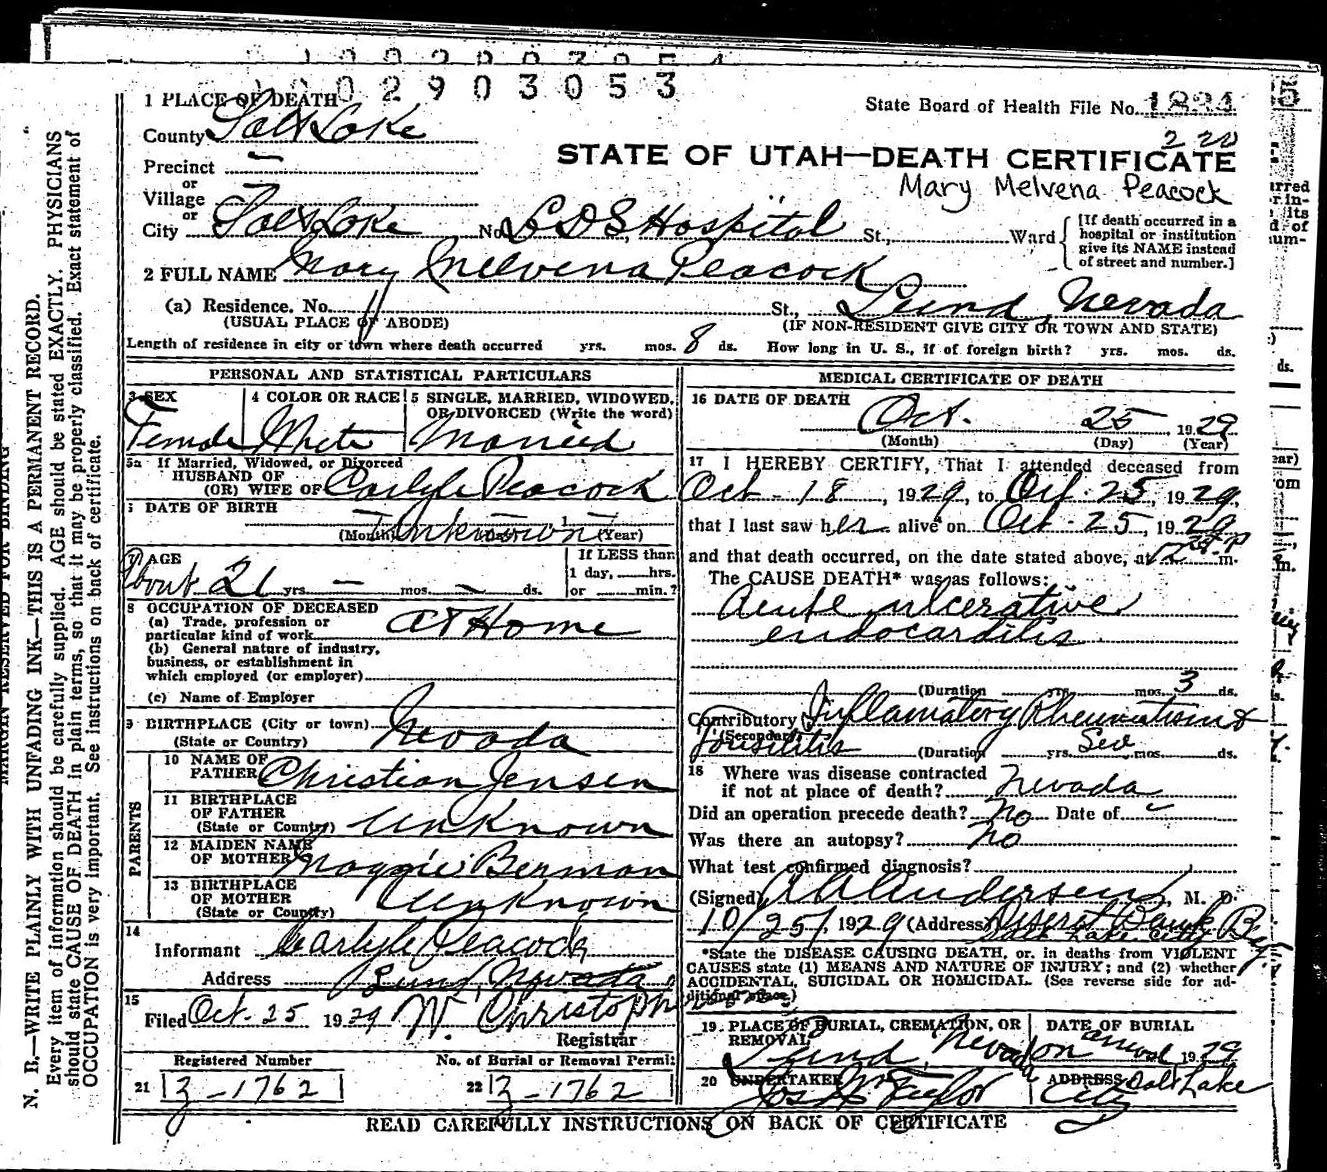 1002903053
1 PLACE OF DEATH
State Board of Health File No. 1834
County Salt Lake
2 20
Precinct —
STATE OF UTAH—DEATH CERTIFICATE
or
Village —
Mary Melvena Peacock
or
City Salt Lake No. L D S Hospital St., Ward
[If death occurred in a
hospital or institution
give its NAME instead
of street and number.]
2 FULL NAME Mary Melvena Peacock
(a) Residence. No. St., Lund, Nevada
(USUAL PLACE OF ABODE) (IF NON-RESIDENT GIVE CITY OR TOWN AND STATE)
Length of residence in city or town where death occurred yrs. mos. 8 ds. How long in U. S., if of foreign birth? yrs. mos. ds.
PERSONAL AND STATISTICAL PARTICULARS
3 SEX
Female
4 COLOR OR RACE
White
5 SINGLE, MARRIED, WIDOWED,
OR DIVORCED (Write the word)
Married
5a If Married, Widowed, or Divorced
HUSBAND OF
(OR) WIFE OF Carlyle Peacock
DATE OF BIRTH
Unknown
(Month) (Year)
7 AGE
About 21 yrs. — mos. — ds.
If LESS than
1 day, hrs.
or min.?
8 OCCUPATION OF DECEASED
(a) Trade, profession or
particular kind of work At Home
(b) General nature of industry,
business, or establishment in
which employed (or employer)
(c) Name of Employer
9 BIRTHPLACE (City or town)
(State or Country) Nevada
PARENTS
10 NAME OF
FATHER Christian Jensen
11 BIRTHPLACE
OF FATHER
(State or Country) Unknown
12 MAIDEN NAME
OF MOTHER Maggie Berman
13 BIRTHPLACE
OF MOTHER
(State or Country) Unknown
14
Informant Carlyle Peacock
Address Lund, Nevada
15
Filed Oct. 25 1929 W. Christoph
Registrar
Registered Number No. of Burial or Removal Permit
21 3-1762 22 3-1762
MEDICAL CERTIFICATE OF DEATH
16 DATE OF DEATH
Oct. 25, 1929
(Month) (Day) (Year)
17 I HEREBY CERTIFY, That I attended deceased from
Oct - 18, 1929, to Oct. 25, 1929,
that I last saw her alive on Oct. 25, 1929
and that death occurred, on the date stated above, at 12 P m.
The CAUSE DEATH* was as follows:
Acute ulcerative
endocarditis
(Duration yrs. mos. 3 ds.
Contributory Inflamatory Rheumatism &
(Secondary)
Tonsilitis (Duration yrs. Sev mos. ds.
18 Where was disease contracted
if not at place of death? Nevada
Did an operation precede death? No Date of
Was there an autopsy? No
What test confirmed diagnosis?
(Signed) A A Anderson, M. D.
10/25/, 1929 (Address) Deseret Bank Bldg.
Salt Lake City
*State the DISEASE CAUSING DEATH, or, in deaths from VIOLENT
CAUSES state (1) MEANS AND NATURE OF INJURY; and (2) whether
ACCIDENTAL, SUICIDAL OR HOMICIDAL. (See reverse side for ad-
ditional space.)
19 PLACE OF BURIAL, CREMATION, OR
REMOVAL
Lund, Nevada
DATE OF BURIAL
on 1929
20 UNDERTAKER
Jos Wm Taylor
ADDRESS Salt Lake
City
READ CAREFULLY INSTRUCTIONS ON BACK OF CERTIFICATE
MARGIN RESERVED FOR BINDING
N. B.—WRITE PLAINLY WITH UNFADING INK—THIS IS A PERMANENT RECORD.
Every item of information should be carefully supplied. AGE should be stated EXACTLY. PHYSICIANS
should state CAUSE OF DEATH in plain terms, so that it may be properly classified. Exact statement of
OCCUPATION is very important. See instructions on back of certificate.